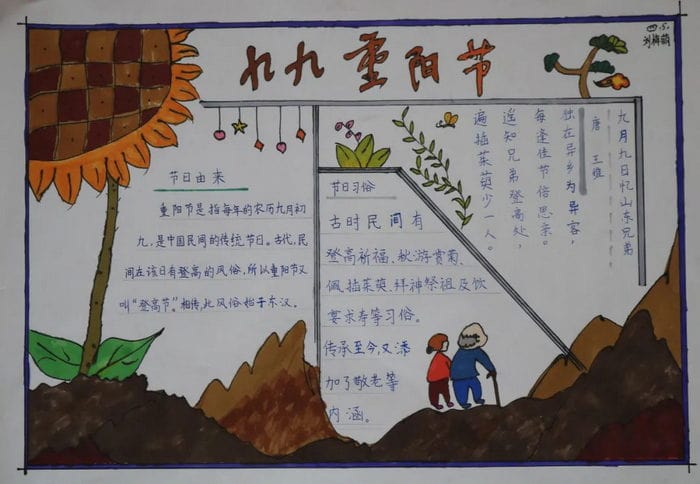 四.5.
九九重阳节
节日由来
重阳节是指每年的农历九月初
九,是中国民间的传统节日。古代,民
间在该日有登高的风俗,所以重阳节又
叫“登高节”。相传,此风俗始于东汉。
节日习俗
古时民间有
登高祈福、秋游赏菊、
佩插茱萸、拜神祭祖及饮
宴求寿等习俗。
传承至今,又添
加了敬老等
内涵。
九月九日忆山东兄弟
唐 王维
独在异乡为异客,
每逢佳节倍思亲。
遥知兄弟登高处,
遍插茱萸少一人。